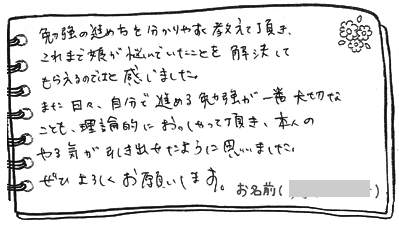 勉強の進め方を分かりやすく教えて頂き、
これまで娘が悩んでいたことを解決して
もらえるのではと感じました。
また日々、自分で進める勉強が一番大切な
ことも、理論的におっしゃって頂き、本人の
やる気が引き出せたように思いました。
ぜひよろしくお願いします。 お名前(